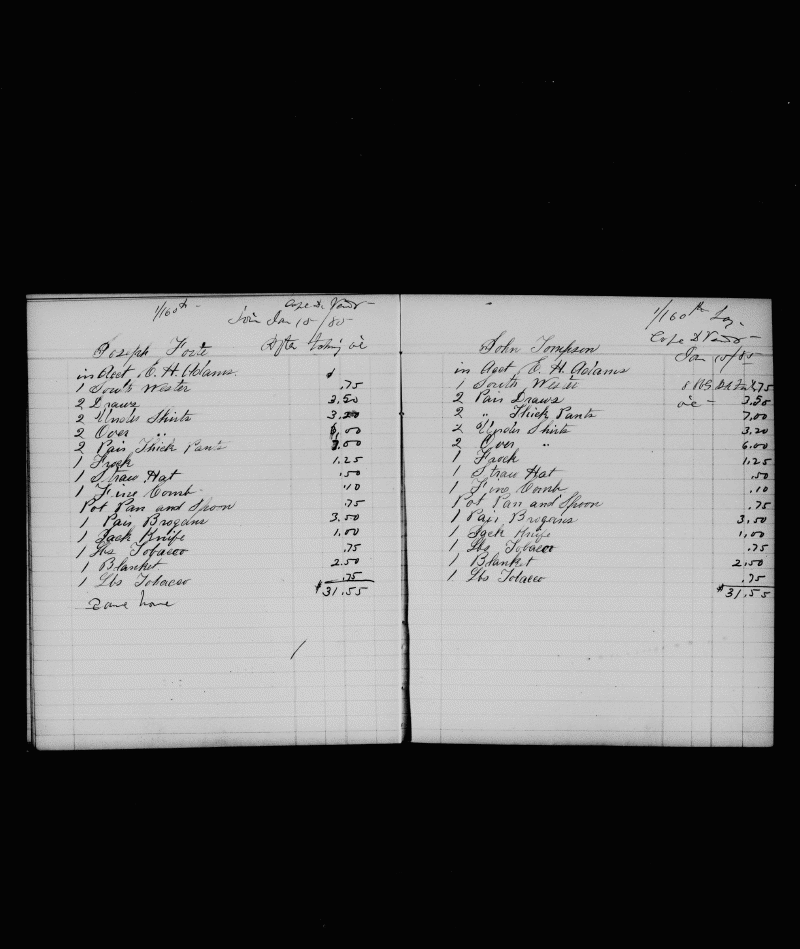 1/160th -
Cape D. Verde -
Join Jan 15/85
Joseph Forte After taking oil
in Acct E. H. Adams
1 South Wester .75
2 Draws 3.50
2 Under Shirts 3.20
2 Over " 6.00
2 Pair Thick Pants 7.00
1 Frock 1.25
1 Straw Hat .50
1 Fine Comb .10
Pot Pan and Spoon .75
1 Pair Brogans 3.50
1 Jack Knife 1.00
1 Lbs Tobacco .75
1 Blanket 2.50
1 Lbs Tobacco .75
$31.55
1/160th Lay -
Cape D Verde -
John Tompson Jan 15/85
in Acct E. H. Adams
1 South Wester .75
2 Pair Draws 3.50
2 " Thick Pants 7.00
2 Under Shirts 3.20
2 Over " 6.00
1 Frock 1.25
1 Straw Hat .50
1 Fine Comb .10
Pot Pan and Spoon .75
1 Pair Brogans 3.50
1 Jack Knife 1.00
1 Lbs Tobacco .75
1 Blanket 2.50
1 Lbs Tobacco .75
$31.55